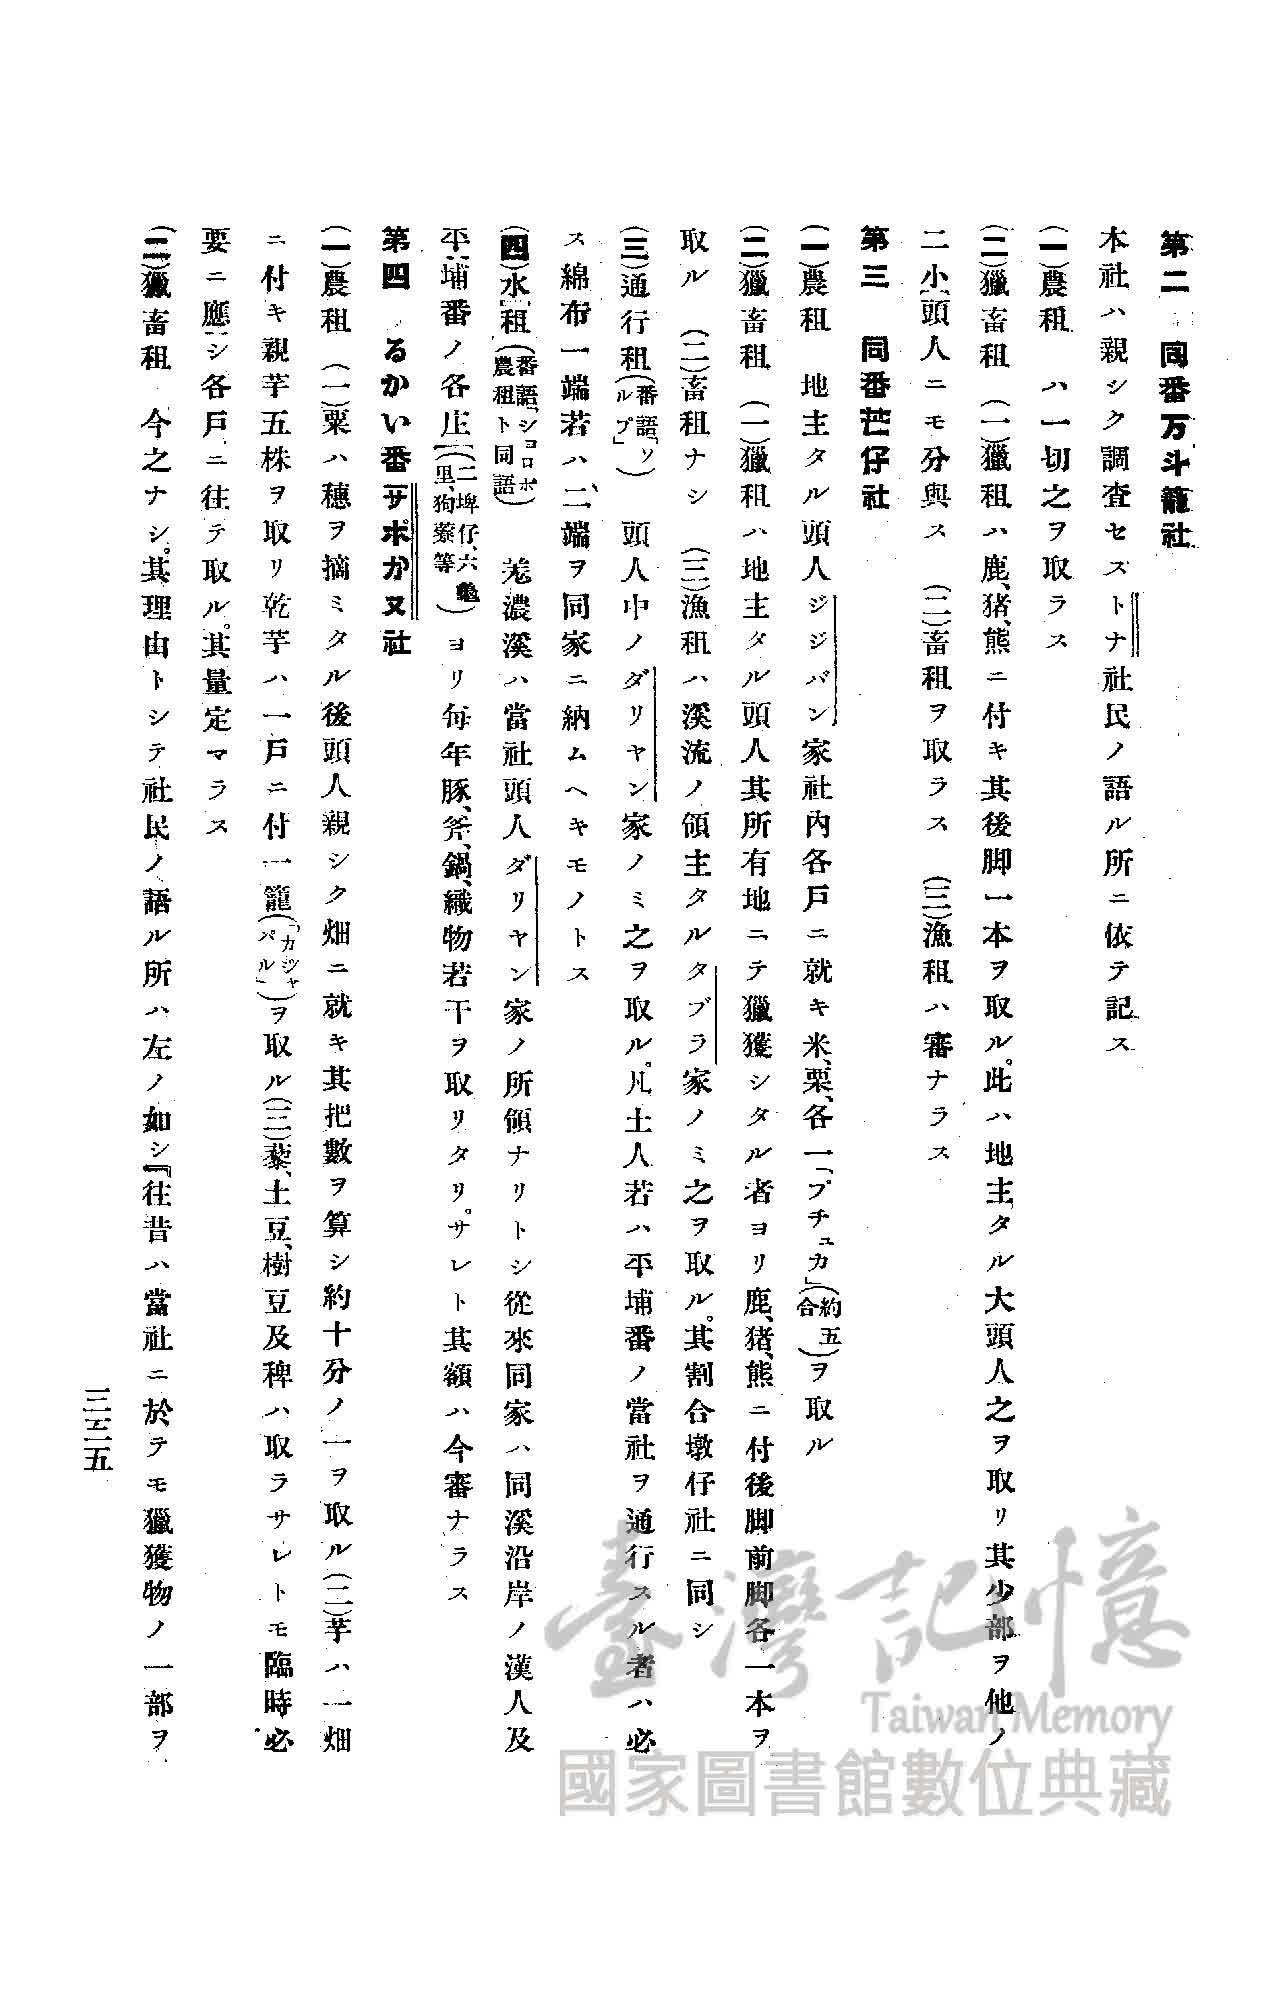 第二　同番万斗籠社
本社ハ親シク調査セストナ社民ノ語ル所ニ依テ記ス
(一)農租　ハ一切之ヲ取ラス
(二)獵畜租　(一)獵租ハ鹿、猪、熊ニ付キ其後脚一本ヲ取ル。此ハ地主タル大頭人之ヲ取リ其少部ヲ他ノ
二小頭人ニモ分與ス　(二)畜租ヲ取ラス　(三)漁租ハ審ナラス
第三　同番芒仔社
(一)農租　地主タル頭人ジジバン家社内各戸ニ就キ米、粟、各一「プチュカ」(約五合)ヲ取ル
(二)獵畜租　(一)獵租ハ地主タル頭人其所有地ニテ獵獲シタル者ヨリ鹿、猪、熊ニ付後脚前脚各一本ヲ
取ル　(二)畜租ナシ　(三)漁租ハ溪流ノ領主タルタブラ家ノミ之ヲ取ル。其割合墩仔社ニ同シ
(三)通行租(番語「ソルブ」)　頭人中ノダリヤン家ノミ之ヲ取ル。凡土人若ハ平埔番ノ當社ヲ通行スル者ハ必
ス綿布一端若ハ、二端ヲ同家ニ納ムヘキモノトス
(四)水租(番語「ショロボ」農租ト同語)　羗濃溪ハ當社頭人ダリヤン家ノ所領ナリトシ從來同家ハ同溪沿岸ノ漢人及
平埔番ノ各庄(二埤仔、六龜里、狗藔等)ヨリ每年豚、斧、鍋、織物若干ヲ取リタリ。サレト其額ハ今審ナラス
第四　るかい番サポかヌ社
(一)農租　(一)粟ハ穗ヲ摘ミタル後頭人親シク畑ニ就キ其把數ヲ算シ約十分ノ一ヲ取ル(二)芋ハ一畑
ニ付キ親芋五株ヲ取リ乾芋ハ一戸ニ付一籠(「カツャパル」)ヲ取ル(三)藜、土豆、樹豆及稗ハ取ラサレトモ臨時必
要ニ應シ各戸ニ往テ取ル。其量定マラス
(二)獵畜租　今之ナシ。其理由トシテ社民ノ語ル所ハ左ノ如シ『往昔ハ當社ニ於テモ獵獲物ノ一部ヲ
三三五
臺灣記憶
Taiwan Memory
國家圖書館數位典藏